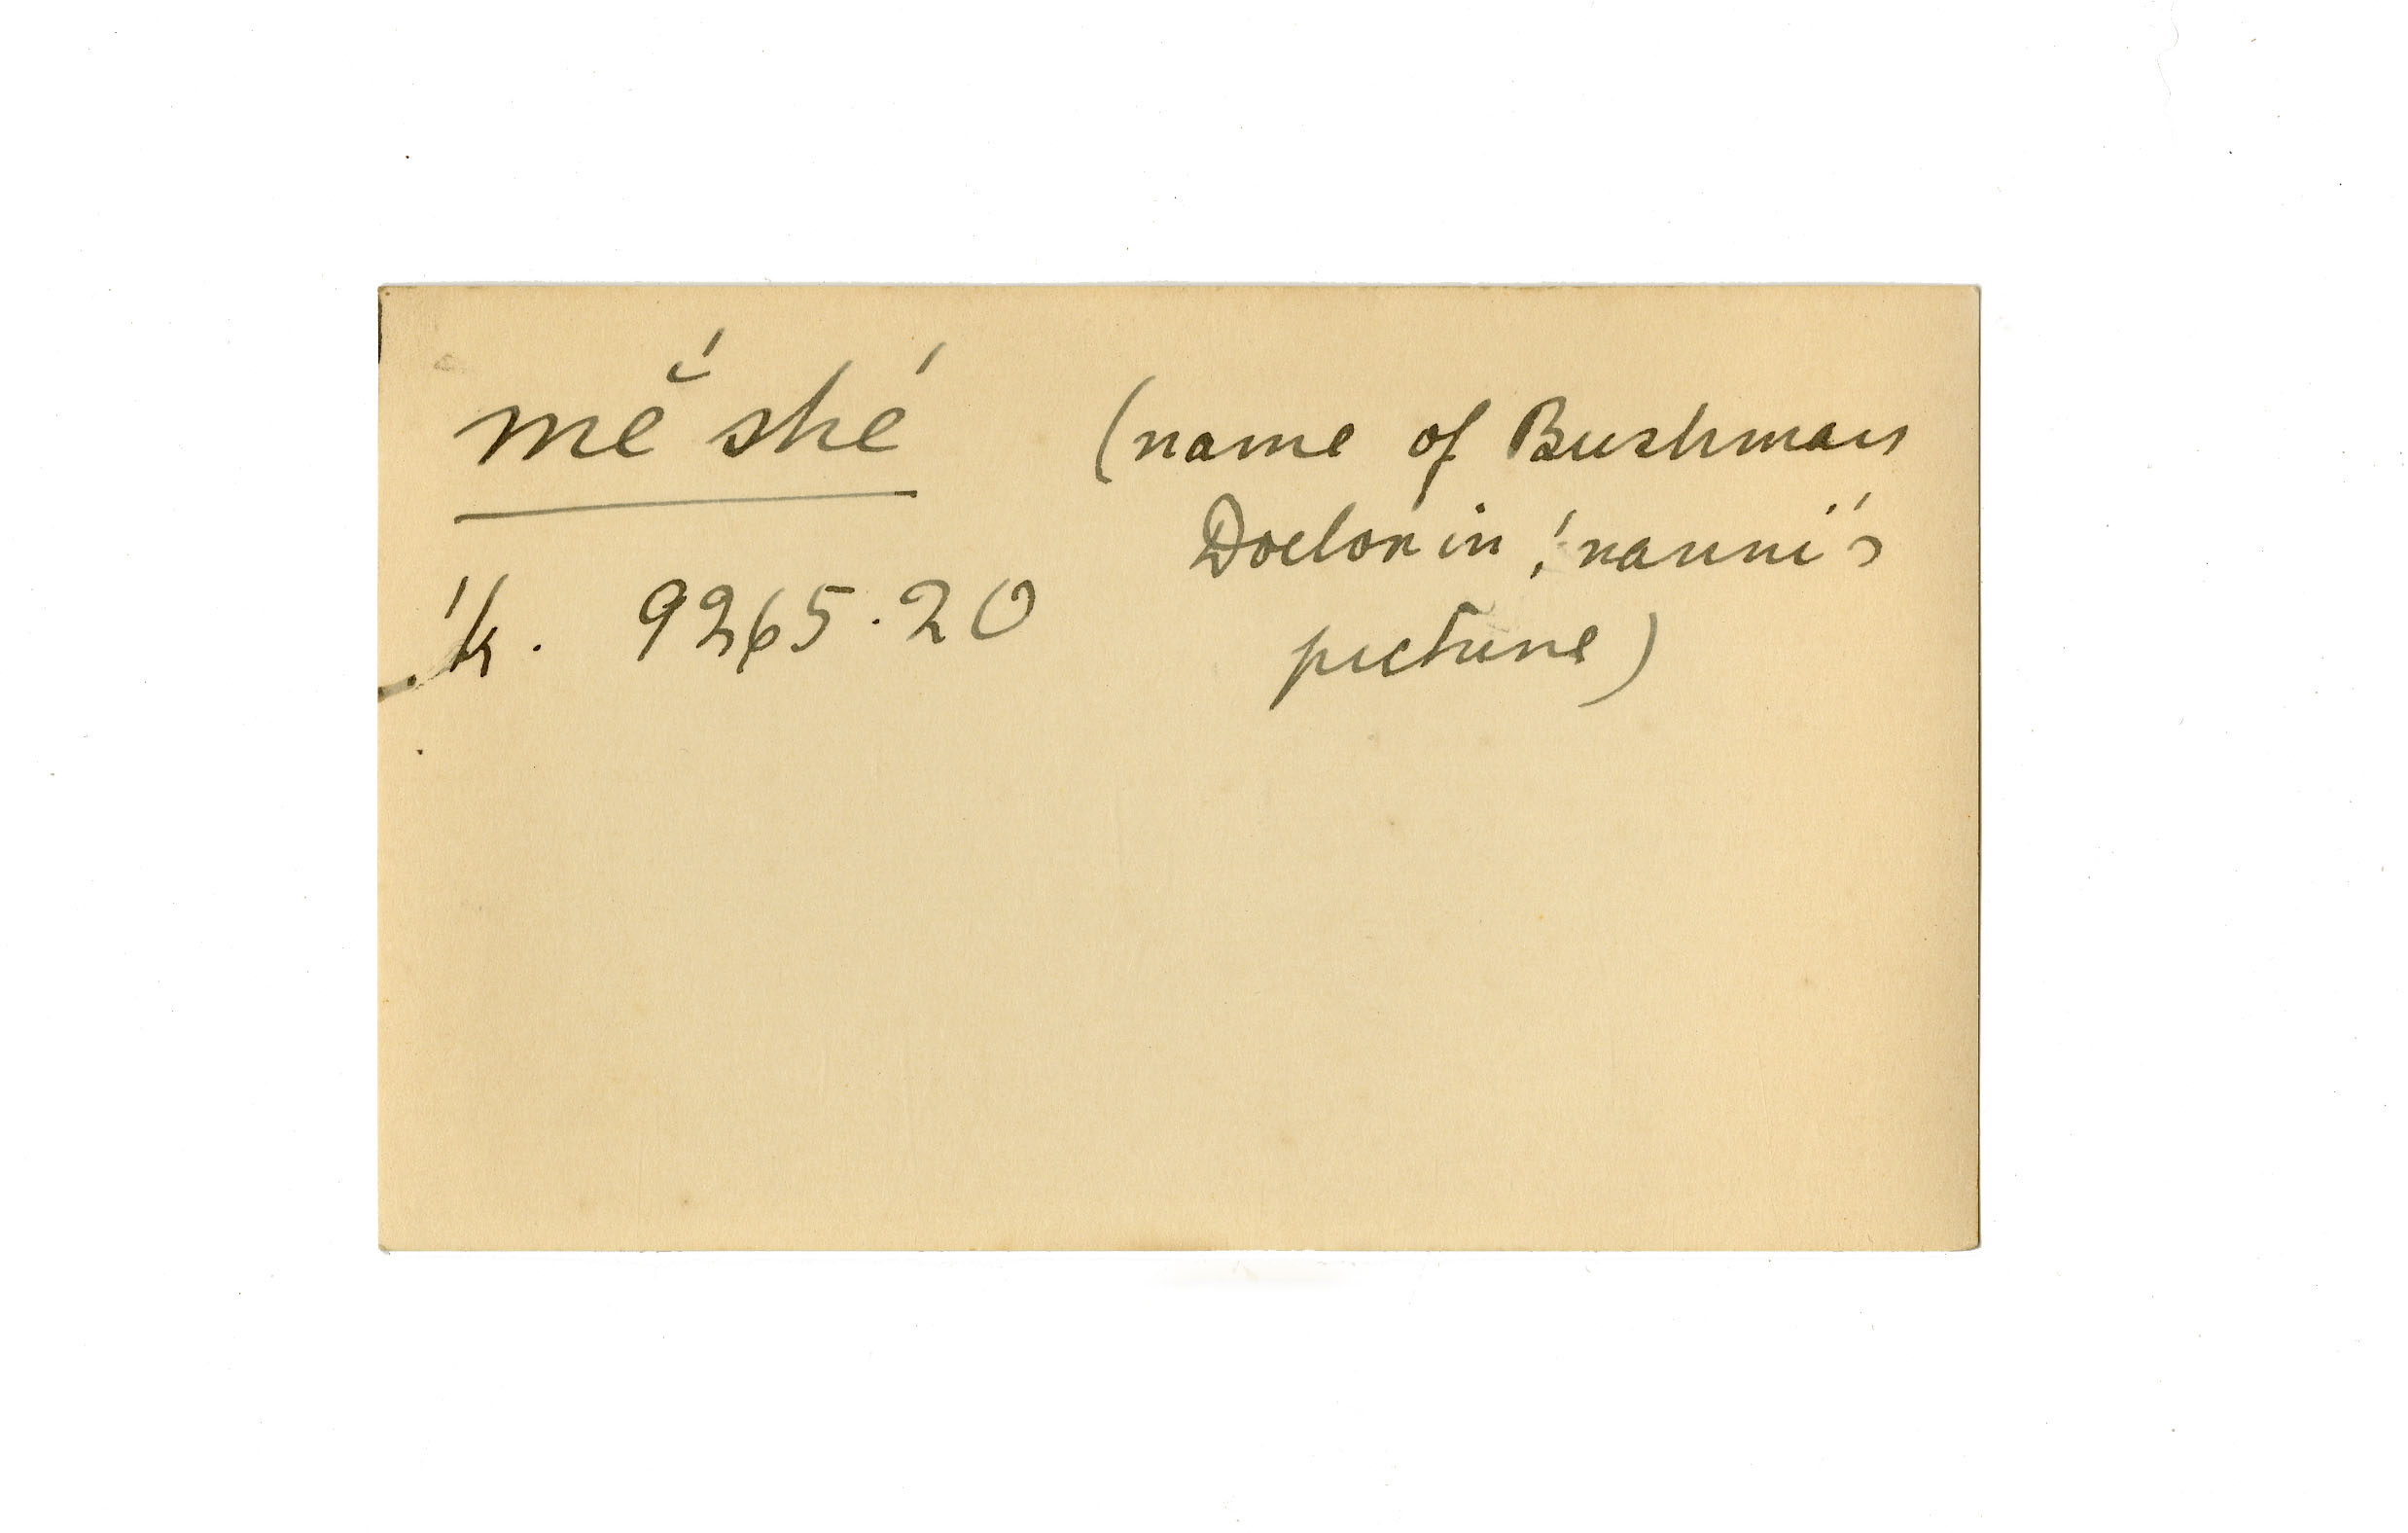 mĕ́ shé (name of Bushman
Doctor in !nanni's
picture)
!k. 9265.20